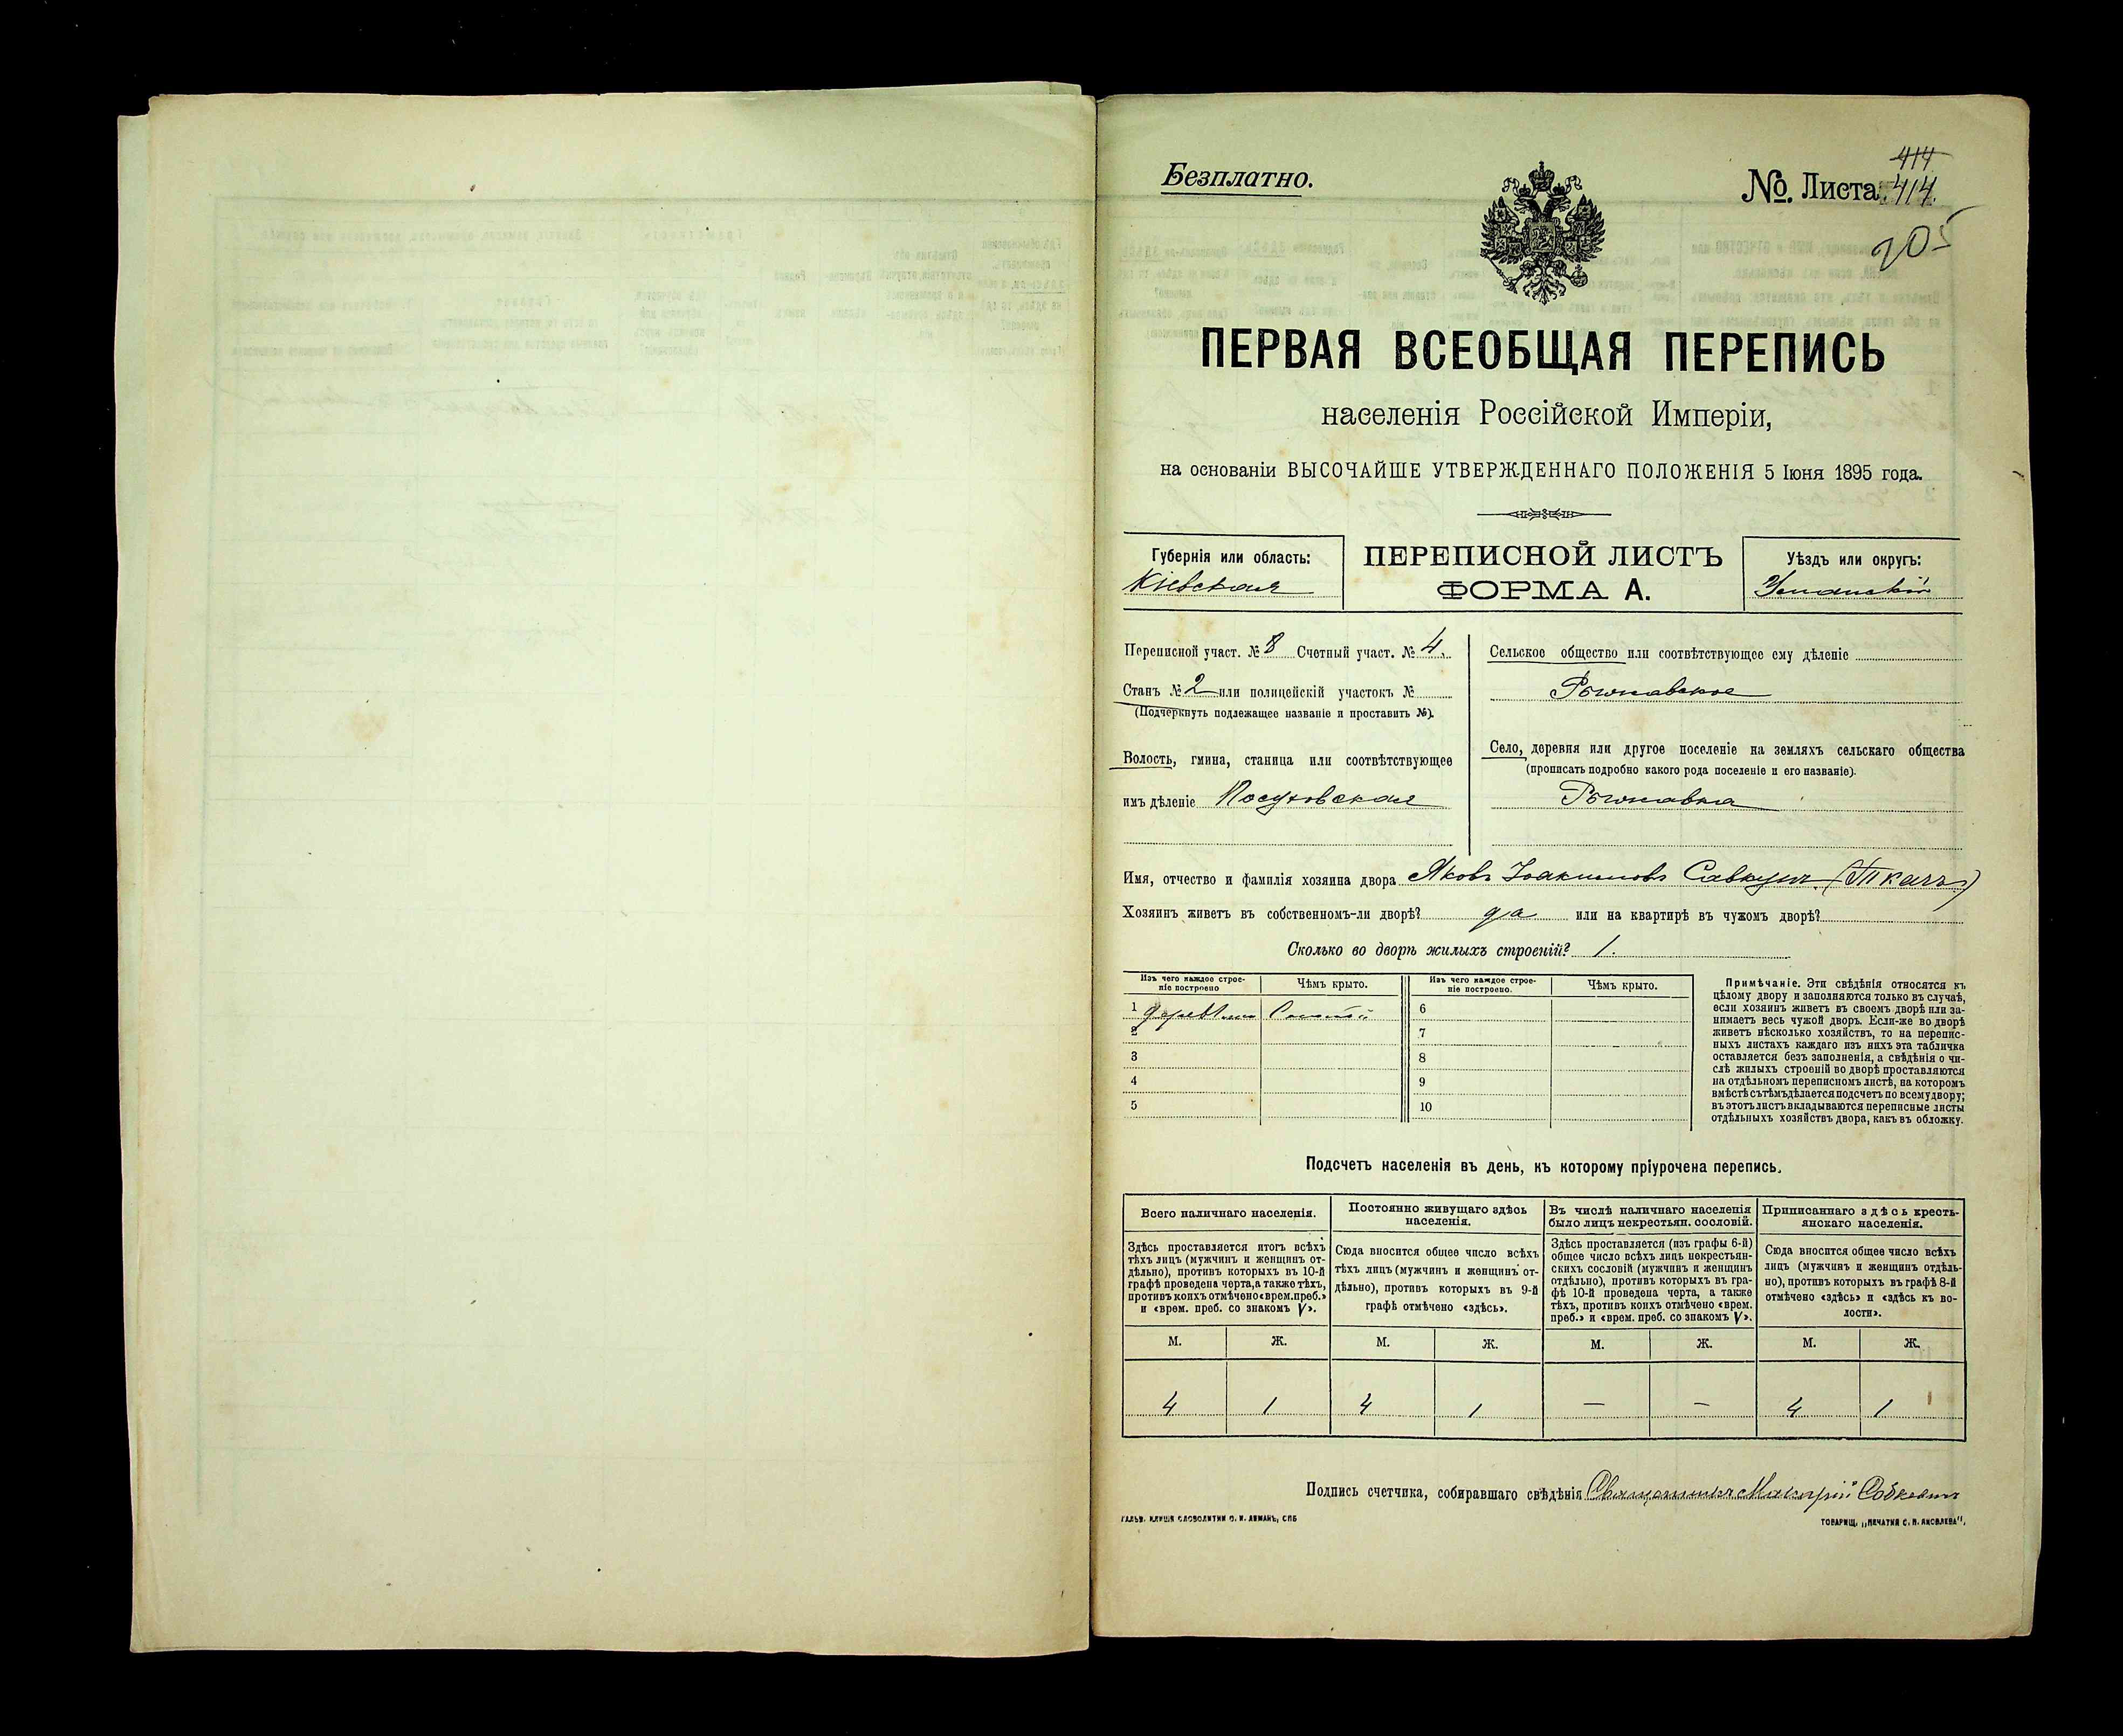 Безплатно.
№. Листа 414
414
205
ПЕРВАЯ ВСЕОБЩАЯ ПЕРЕПИСЬ
населенія Россійской Имперіи,
на основаніи ВЫСОЧАЙШЕ УТВЕРЖДЕННАГО ПОЛОЖЕНІЯ 5 Іюня 1895 года.
Губернія или область:
Кіевская
ПЕРЕПИСНОЙ ЛИСТЪ
ФОРМА А.
Уѣздъ или округъ:
Уманскій
Переписной участ. № 8 Счетный участ. № 4.
Станъ № 2 или полицейскій участокъ №
(Подчеркнуть подлежащее названіе и проставить №).
Волость, гмина, станица или соотвѣтствующее
имъ дѣленіе Посуховская
Сельское общество или соотвѣтствующее ему дѣленіе
Село, деревня или другое поселеніе на земляхъ сельскаго общества
(прописать подробно какого рода поселеніе и его названіе).
Имя, отчество и фамилія хозяина двора Яковъ Іоакимовъ Савкунъ (Ткачъ)
Хозяинъ живетъ въ собственномъ-ли дворѣ? да или на квартирѣ въ чужомъ дворѣ?
Сколько во дворѣ жилыхъ строеній? 1.
Изъ чего каждое строе-
ніе построено
Чѣмъ крыто.
Изъ чего каждое строе-
ніе построено.
Чѣмъ крыто.
1 Соломой
2
3
4
5
6
7
8
9
10
Примѣчаніе. Эти свѣдѣнія относятся къ
цѣлому двору и заполняются только въ случаѣ,
если хозяинъ живетъ въ своемъ дворѣ или за-
нимаетъ весь чужой дворъ. Если-же во дворѣ
живетъ нѣсколько хозяйствъ, то на перепис-
ныхъ листахъ каждаго изъ нихъ эта табличка
оставляется безъ заполненія, а свѣдѣнія о чи-
слѣ жилыхъ строеній во дворѣ проставляются
на отдѣльномъ переписномъ листѣ, на которомъ
вмѣстѣ съ тѣмъ дѣлается подсчетъ по всему двору;
въ этотъ листъ вкладываются переписные листы
отдѣльныхъ хозяйствъ двора, какъ въ обложку.
Подсчетъ населенія въ день, къ которому пріурочена перепись.
Всего наличнаго населенія.
Постоянно живущаго здѣсь
населенія.
Въ числѣ наличнаго населенія
было лицъ некрестьян. сословій.
Приписаннаго здѣсь кресть-
янскаго населенія.
Здѣсь проставляется итогъ всѣхъ
тѣхъ лицъ (мужчинъ и женщинъ от-
дѣльно), противъ которыхъ въ 10-й
графѣ проведена черта, а также тѣхъ,
противъ коихъ отмѣчено «врем. преб.»
и «врем. преб. со знакомъ V».
Сюда вносится общее число всѣхъ
тѣхъ лицъ (мужчинъ и женщинъ от-
дѣльно), противъ которыхъ въ 9-й
графѣ отмѣчено «здѣсь».
Здѣсь проставляется (изъ графы 6-й)
общее число всѣхъ лицъ некрестьян-
скихъ сословій (мужчинъ и женщинъ
отдѣльно), противъ которыхъ въ гра-
фѣ 10-й проведена черта, а также
тѣхъ, противъ коихъ отмѣчено «врем.
преб.» и «врем. преб. со знакомъ V».
Сюда вносится общее число всѣхъ
лицъ (мужчинъ и женщинъ отдѣль-
но), противъ которыхъ въ графѣ 8-й
отмѣчено «здѣсь» и «здѣсь къ во-
лости».
М. Ж. М. Ж. М. Ж. М. Ж.
4 1 4 1 — — 4 1
Подпись счетчика, собиравшаго свѣдѣнія Священникъ Макарій Собкевичъ
ГАЛЬВ. КЛИШЕ СЛОВОЛИТНИ О. И. ЛЕМАНЪ, СПБ
ТОВАРИЩ. „ПЕЧАТНЯ С. П. ЯКОВЛЕВА".